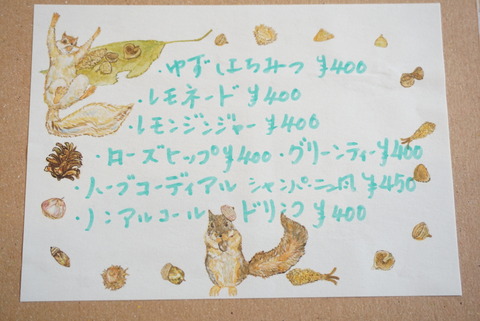 ・ゆずはちみつ ¥400
・レモネード ¥400
・レモンジンジャー ¥400
・ローズヒップ ¥400 ・グリーンティー ¥400
・ハーブコーディアル シャンパーニュ風 ¥450
・ノンアルコール ドリンク ¥400